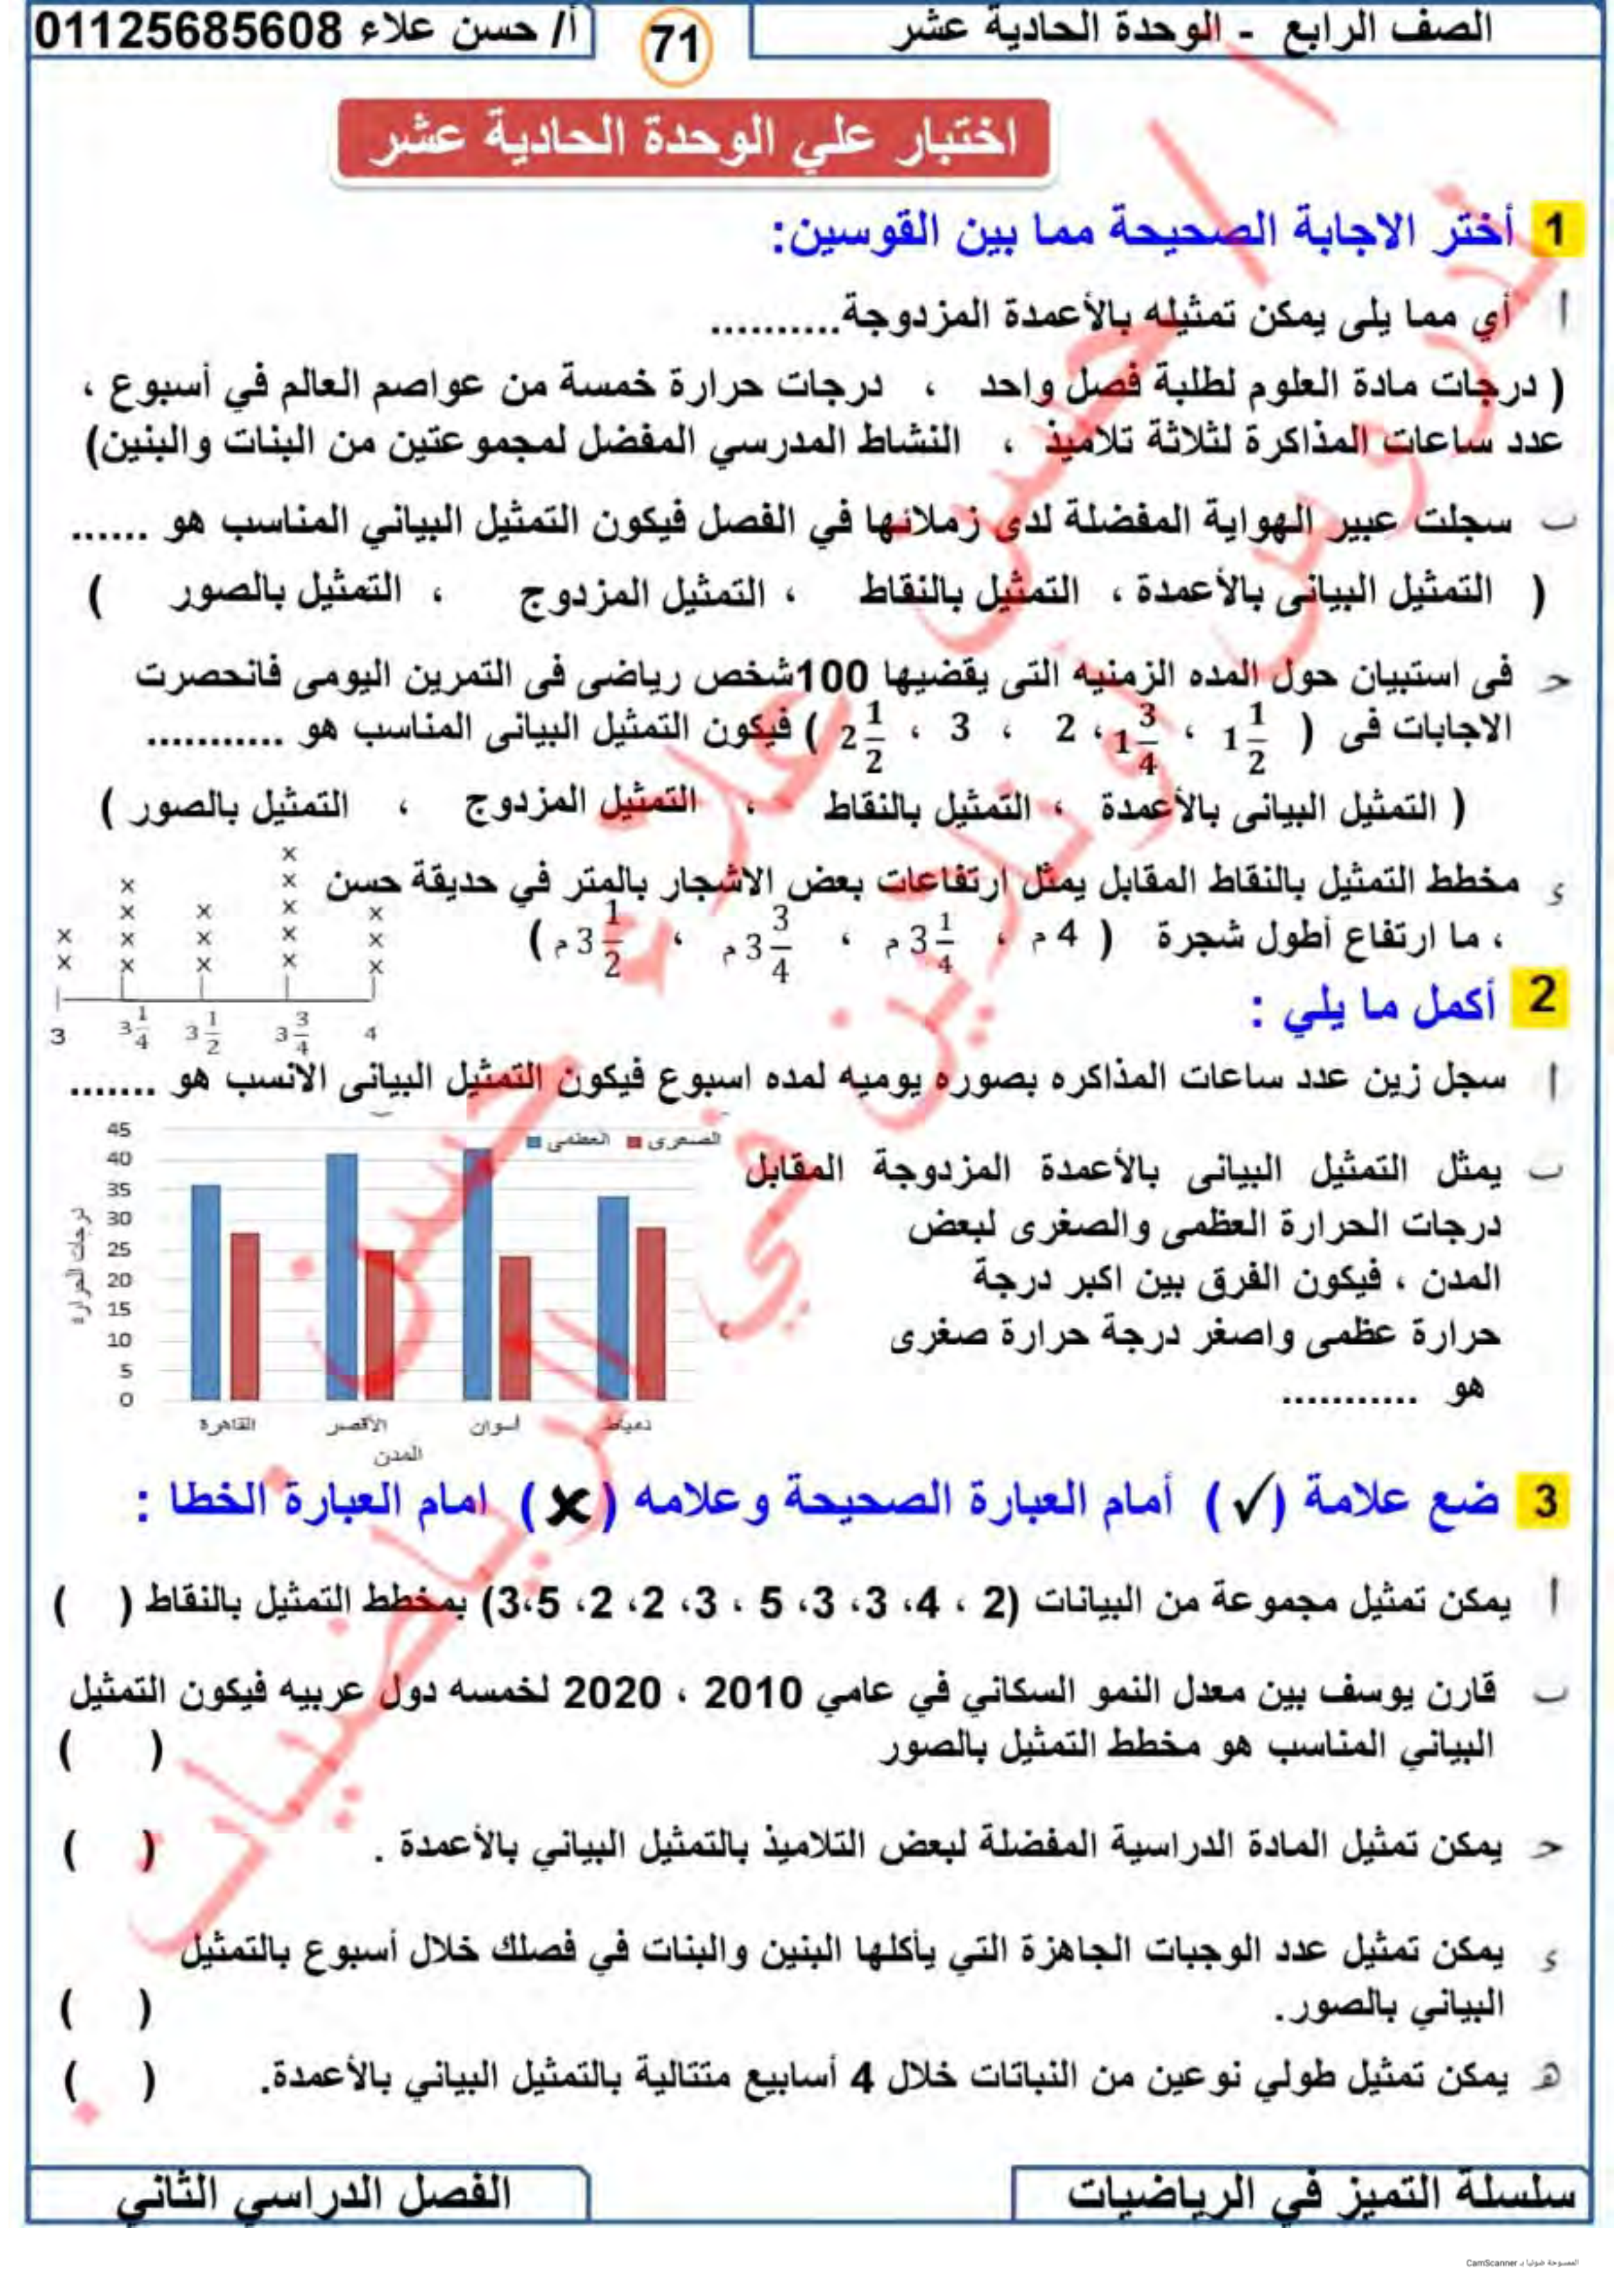 الصف الرابع - الوحدة الحادية عشر
71
أ/ حسن علاء 01125685608
اختبار علي الوحدة الحادية عشر
1 أختر الاجابة الصحيحة مما بين القوسين:
أ أي مما يلى يمكن تمثيله بالأعمدة المزدوجة..........
( درجات مادة العلوم لطلبة فصل واحد ، درجات حرارة خمسة من عواصم العالم في أسبوع ،
عدد ساعات المذاكرة لثلاثة تلاميذ ، النشاط المدرسي المفضل لمجموعتين من البنات والبنين)
ب سجلت عبير الهواية المفضلة لدى زملائها في الفصل فيكون التمثيل البياني المناسب هو ......
( التمثيل البيانى بالأعمدة ، التمثيل بالنقاط ، التمثيل المزدوج ، التمثيل بالصور )
حـ فى استبيان حول المده الزمنيه التى يقضيها 100شخص رياضى فى التمرين اليومى فانحصرت
الاجابات فى ( 1 1/2 ، 1 3/4 ، 2 ، 3 ، 2 1/2 ) فيكون التمثيل البيانى المناسب هو ...........
( التمثيل البيانى بالأعمدة ، التمثيل بالنقاط ، التمثيل المزدوج ، التمثيل بالصور )
ء مخطط التمثيل بالنقاط المقابل يمثل ارتفاعات بعض الاشجار بالمتر في حديقة حسن
، ما ارتفاع أطول شجرة ( 4 م ، 3 1/4 م ، 3 3/4 م ، 3 1/2 م )
3 3 1/4 3 1/2 3 3/4 4
2 أكمل ما يلي :
أ سجل زين عدد ساعات المذاكره بصوره يوميه لمده اسبوع فيكون التمثيل البيانى الانسب هو .......
ب يمثل التمثيل البيانى بالأعمدة المزدوجة المقابل
درجات الحرارة العظمى والصغرى لبعض
المدن ، فيكون الفرق بين اكبر درجة
حرارة عظمى واصغر درجة حرارة صغرى
هو ...........
العظمى الصغرى
45
40
35
30
25
20
15
10
5
0
درجات الحرارة
القاهرة الأقصر أسوان دمياط
المدن
3 ضع علامة (✓) أمام العبارة الصحيحة وعلامه (✗) امام العبارة الخطا :
أ يمكن تمثيل مجموعة من البيانات (2 ، 4، 3، 3، 5 ، 3، 2، 2، 3،5) بمخطط التمثيل بالنقاط ( )
ب قارن يوسف بين معدل النمو السكاني في عامي 2010 ، 2020 لخمسه دول عربيه فيكون التمثيل
البياني المناسب هو مخطط التمثيل بالصور ( )
حـ يمكن تمثيل المادة الدراسية المفضلة لبعض التلاميذ بالتمثيل البياني بالأعمدة . ( )
ء يمكن تمثيل عدد الوجبات الجاهزة التي يأكلها البنين والبنات في فصلك خلال أسبوع بالتمثيل
البياني بالصور. ( )
هـ يمكن تمثيل طولي نوعين من النباتات خلال 4 أسابيع متتالية بالتمثيل البياني بالأعمدة. ( )
سلسلة التميز في الرياضيات
الفصل الدراسي الثاني
الممسوحة ضوئيا بـ CamScanner